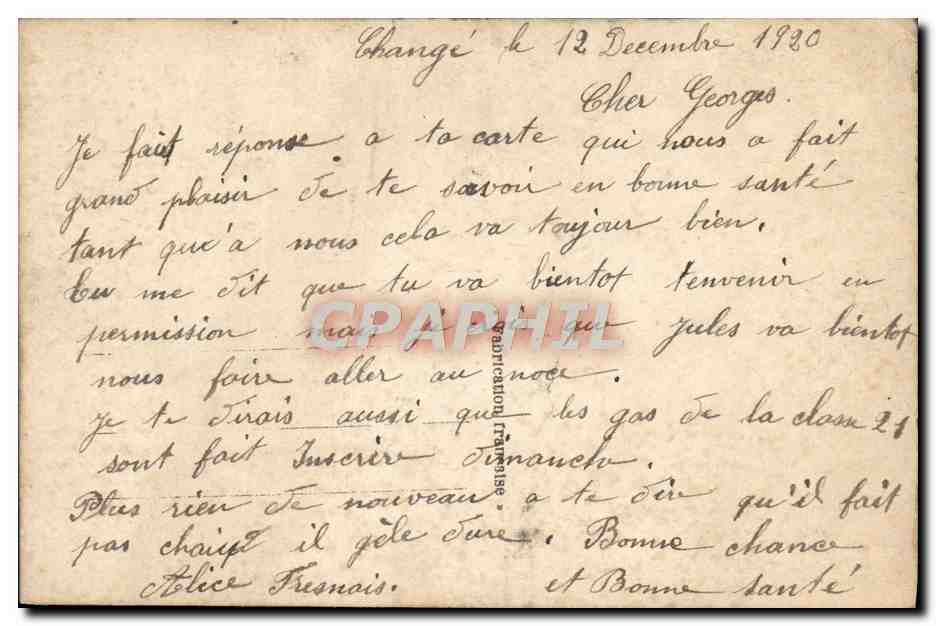 Changé le 12 Decembre 1920
Cher Georges.
Je fait réponse a ta carte qui nous a fait
grand plaisir de te savoir en bonne santé
tant qu'a nous cela va toujour bien.
tu me dit que tu va bientot tenvenir en
permission mais je crois que Jules va bientot
nous faire aller au noce.
Je te dirais aussi que les gas de la classe 21
sont fait Inscrire dimanche.
Plus rien de nouveau a te dire qu'il fait
pas chaud il gèle dure. Bonne chance
Alice Fresnais. et Bonne santé
Fabrication française
CPAPHIL